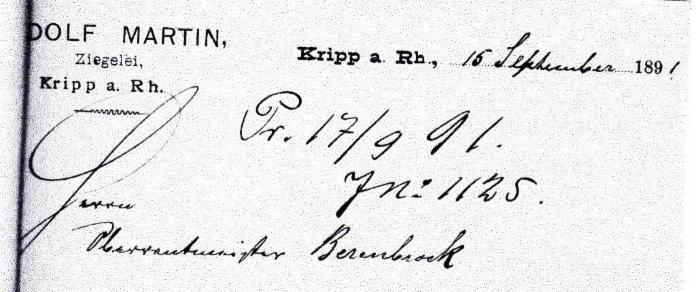 DOLF MARTIN,
Ziegelei,
Kripp a. Rh.
Kripp a. Rh., 15 September 1891
Pr. 17/9 91.
J No 1125.
Herrn
Oberrentmeister Berenbrock